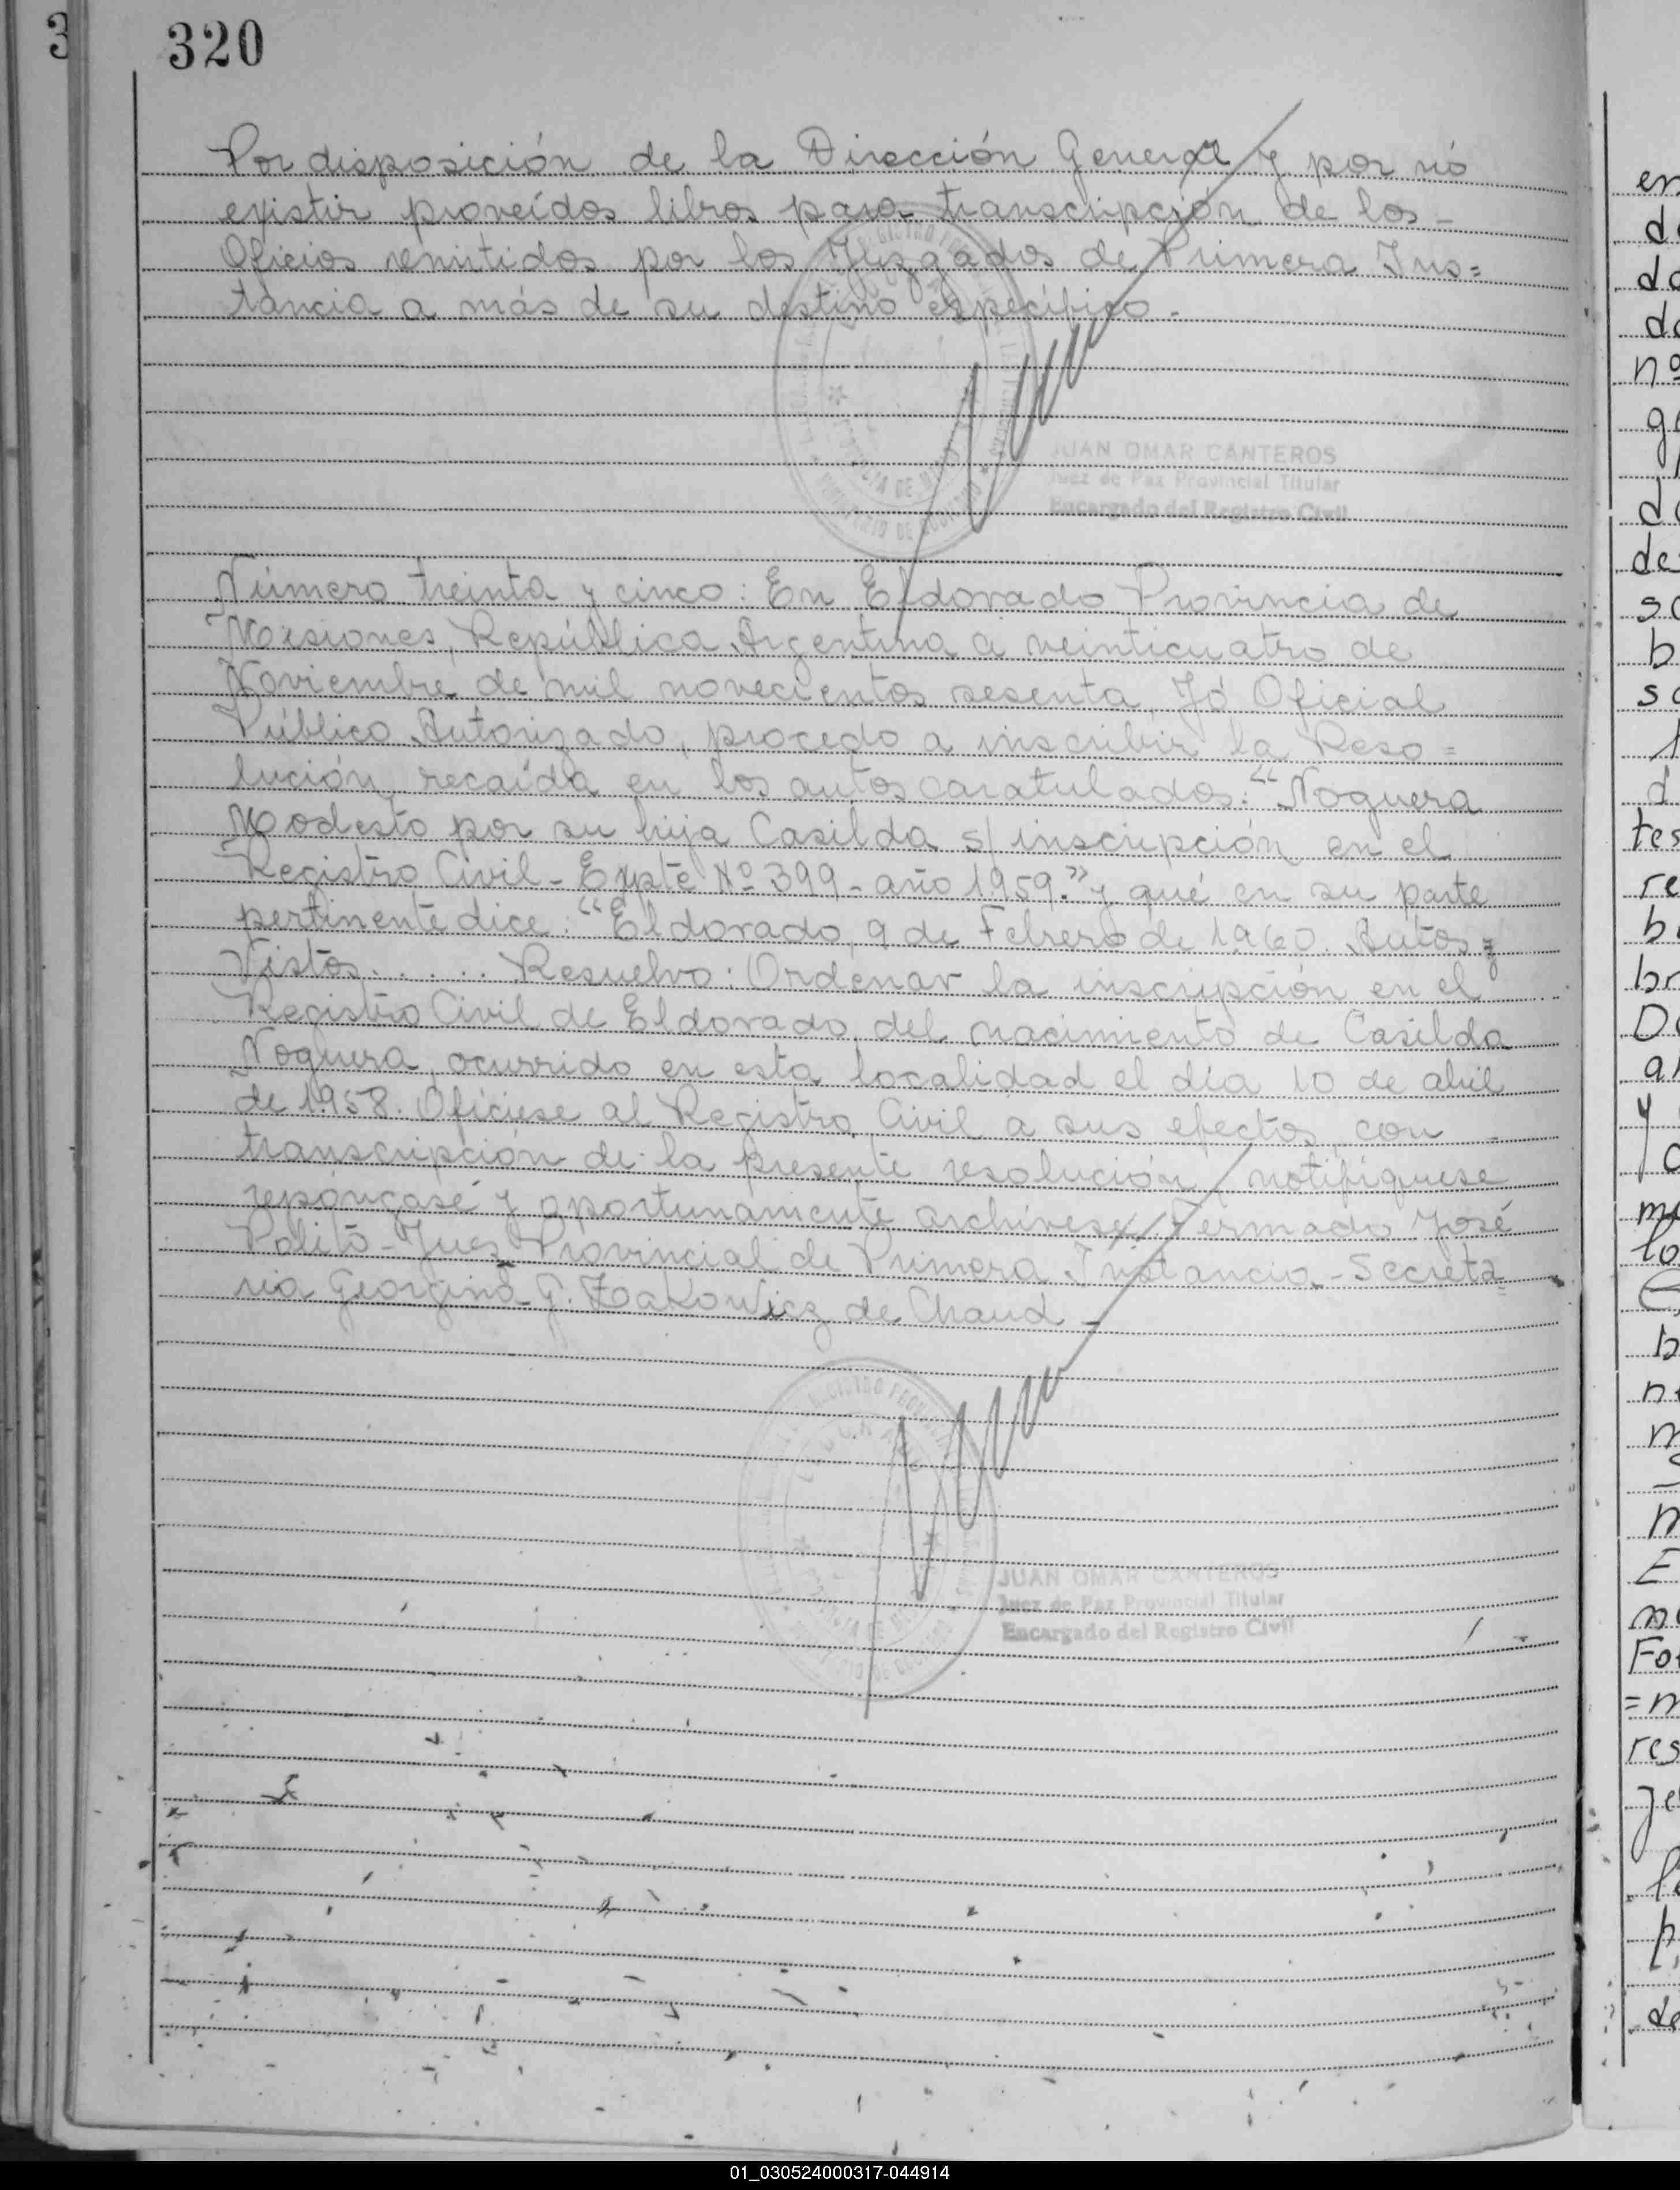 320
Por disposición de la Dirección General y por nó
existir proveídos libros para transcripción de los -
Oficios remitidos por los Juzgados de Primera Ins=
tancia a más de su destino específico.-
JUAN OMAR CANTEROS
Juez de Paz Provincial Titular
Encargado del Registro Civil
Número treinta y cinco: En Eldorado Provincia de
Misiones, República Argentina a veinticuatro de
Noviembre de mil novecientos sesenta, Yó Oficial
Público Autorizado, procedo a inscribir la Reso=
lución recaída en los autos caratulados: "Noguera
Modesto por su hija Casilda s/ inscripción en el
Registro Civil - Expte Nº 399 - año 1959." y qué en su parte
pertinente dice: "Eldorado, 9 de Febrero de 1960. Autos y
Vistos...... Resuelvo: Ordenar la inscripción en el
Registro Civil de Eldorado, del nacimiento de Casilda
Noguera, ocurrido en esta localidad el día 10 de abril
de 1958. Ofíciese al Registro Civil a sus efectos, con -
transcripción de la presente resolución, notifíquese
repóngase y oportunamente archívese. Fermado José
Polito - Juez Provincial de Primera Instancia - Secreta=
ria Georgina G. Zakowicz de Chaud -
JUAN OMAR CANTEROS
Juez de Paz Provincial Titular
Encargado del Registro Civil
01_030524000317-044914